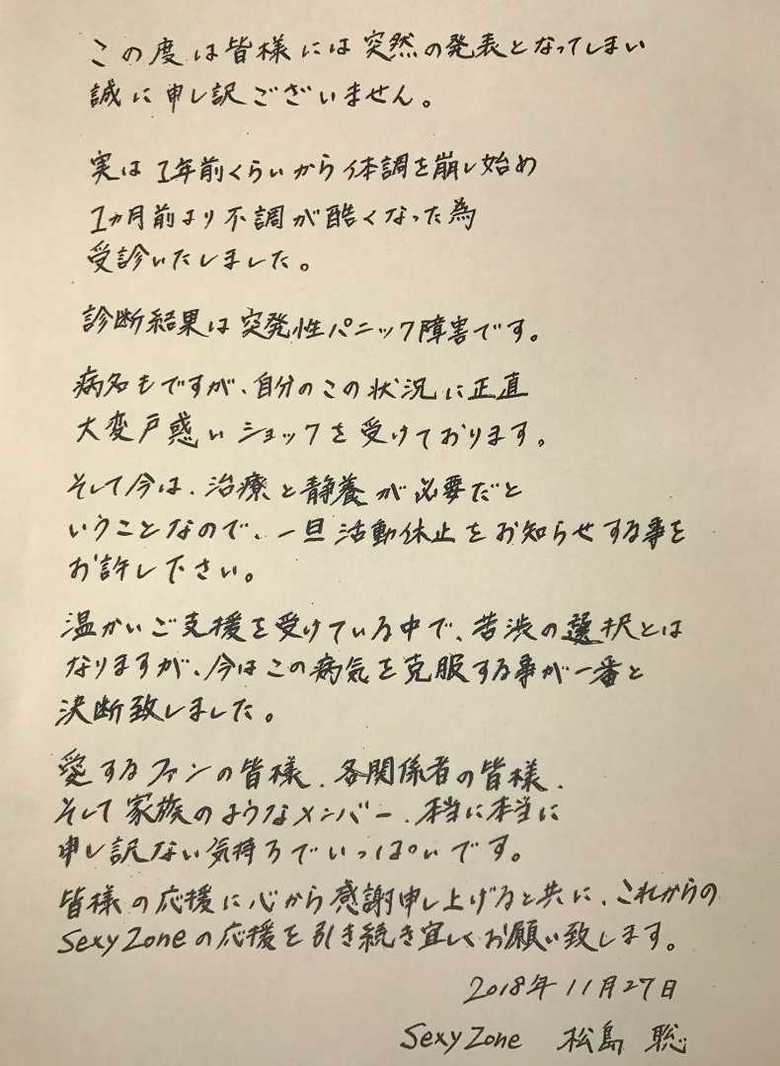 この度は皆様には突然の発表となってしまい
誠に申し訳ございません。
実は1年前くらいから体調を崩し始め
1ヵ月前より不調が酷くなった為
受診いたしました。
診断結果は突発性パニック障害です。
病名もですが、自分のこの状況に正直
大変戸惑いショックを受けております。
そして今は、治療と静養が必要だと
いうことなので、一旦活動休止をお知らせする事を
お許し下さい。
温かいご支援を受けている中で、苦渋の選択とは
なりますが、今はこの病気を克服する事が一番と
決断致しました。
愛するファンの皆様、各関係者の皆様、
そして家族のようなメンバー、本当に本当に
申し訳ない気持ちでいっぱいです。
皆様の応援に心から感謝申し上げると共に、これからの
Sexy Zoneの応援を引き続き宜しくお願い致します。
2018年11月27日
Sexy Zone 松島 聡